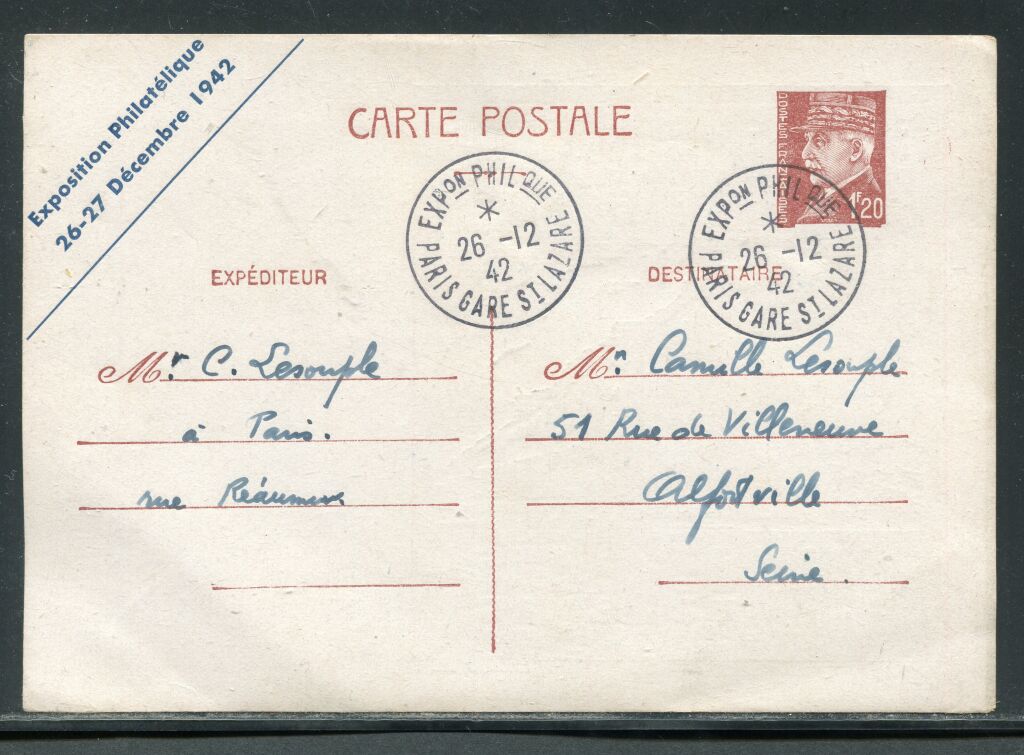 Exposition Philatélique
26-27 Décembre 1942
CARTE POSTALE
POSTES FRANÇAISES
1F20
EXPON PHILQUE
*
26 -12
42
PARIS GARE ST LAZARE
EXPON PHILQUE
*
26 -12
42
PARIS GARE ST LAZARE
EXPÉDITEUR
Mr. C. Lesouple
à Paris.
rue Réaumur
DESTINATAIRE
Mr. Camille Lesouple
51 Rue de Villeneuve
Alfortville
Seine.